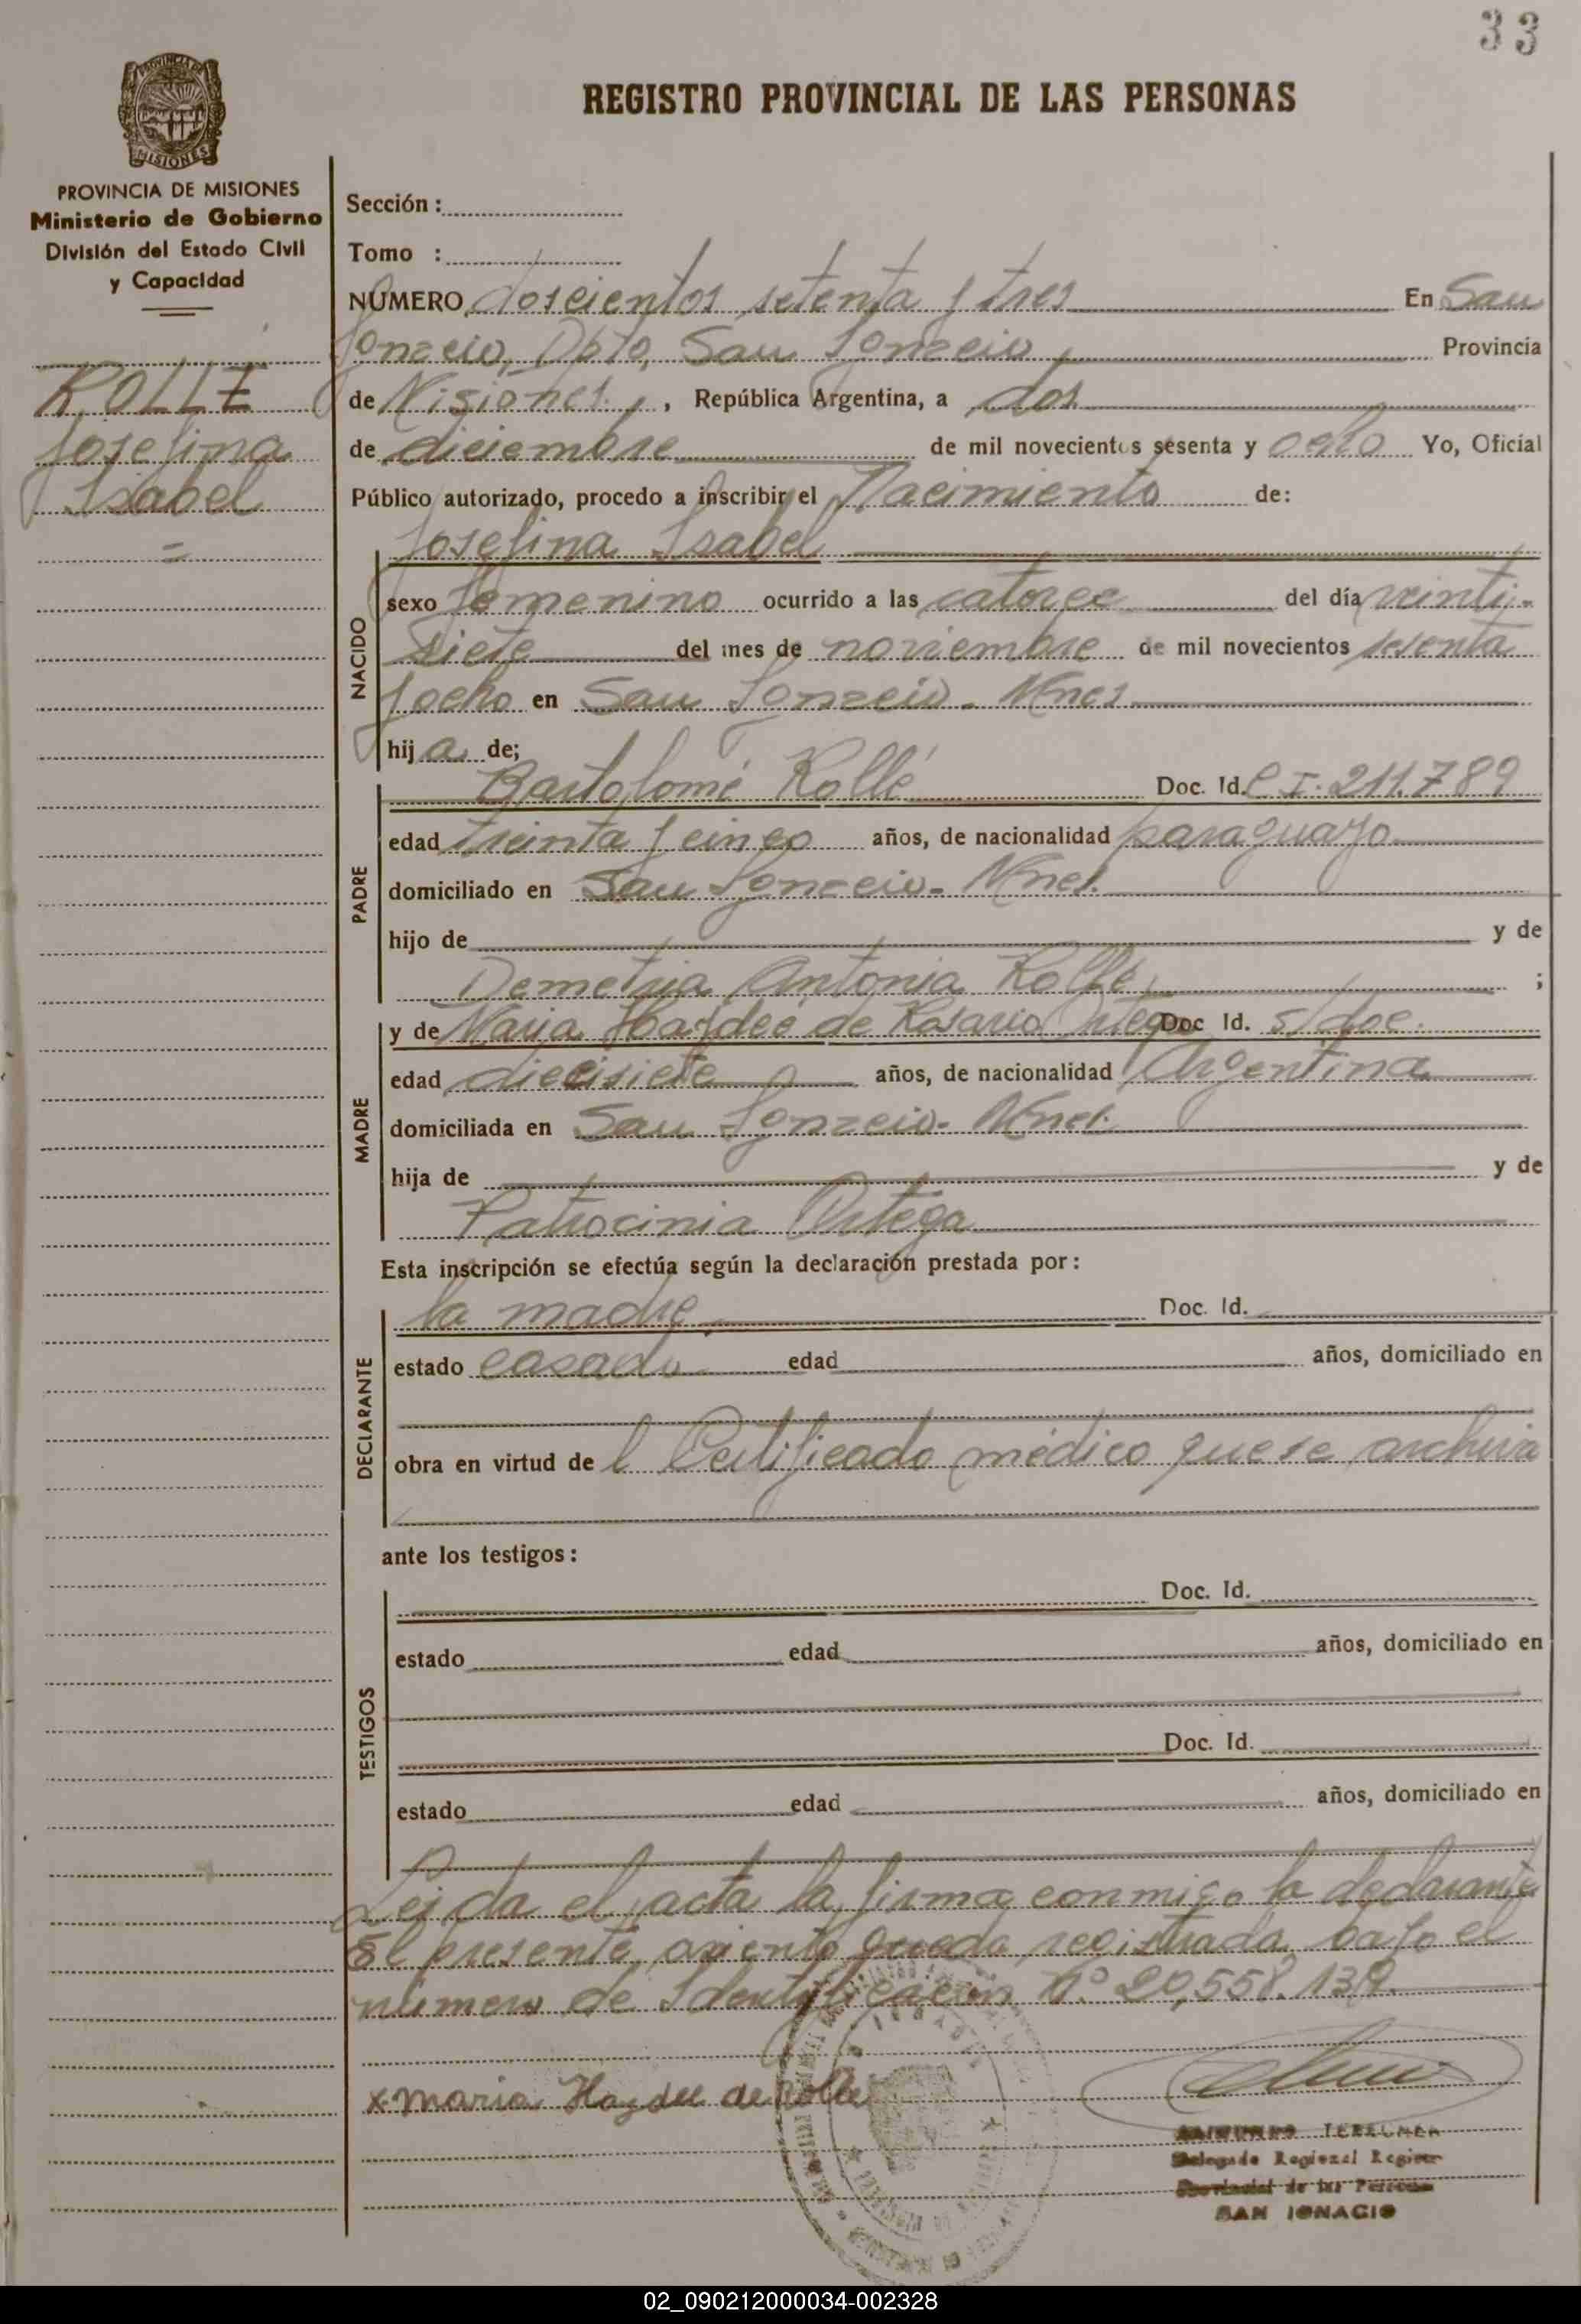 33
REGISTRO PROVINCIAL DE LAS PERSONAS
PROVINCIA DE MISIONES
MISIONES
PROVINCIA DE MISIONES
Ministerio de Gobierno
División del Estado Civil
y Capacidad
ROLLE
Josefina
Isabel
Sección :
Tomo :
NUMERO doscientos setenta y tres En San
Ignacio, Dpto, San Ignacio Provincia
de Misiones. , República Argentina, a dos
de diciembre de mil novecientos sesenta y ocho Yo, Oficial
Público autorizado, procedo a inscribir el Nacimiento de:
Josefina Isabel
NACIDO
sexo femenino ocurrido a las catorce del día veinti-
siete del mes de noviembre de mil novecientos sesenta
y ocho en San Ignacio. Mnes.
hij a de;
PADRE
Bartolomé Rollé Doc. Id. C I. 211.789
edad treinta y cinco años, de nacionalidad paraguayo
domiciliado en San Ignacio- Mnes.
hijo de y de
Demetria Antonia Rollé ;
MADRE
y de Maria Haydeé de Rosario Ortega Doc Id. s/doc.
edad diecisiete años, de nacionalidad Argentina
domiciliada en San Ignacio- Mnes.
hija de y de
Patrocinia Ortega
Esta inscripción se efectúa según la declaración prestada por :
DECLARANTE
la madre. Doc. Id.
estado casada edad años, domiciliado en
obra en virtud de l Certificado médico que se archiva
ante los testigos :
TESTIGOS
Doc. Id.
estado edad años, domiciliado en
Doc. Id.
estado edad años, domiciliado en
Leida el acta la firma conmigo la declarante
El presente asiento queda registrada bajo el
número de Identificación Nº 20,558.139.
x maria Haydee de Rolle
Delegado Regional Registro
Provincial de las Personas
SAN IGNACIO
02_090212000034-002328